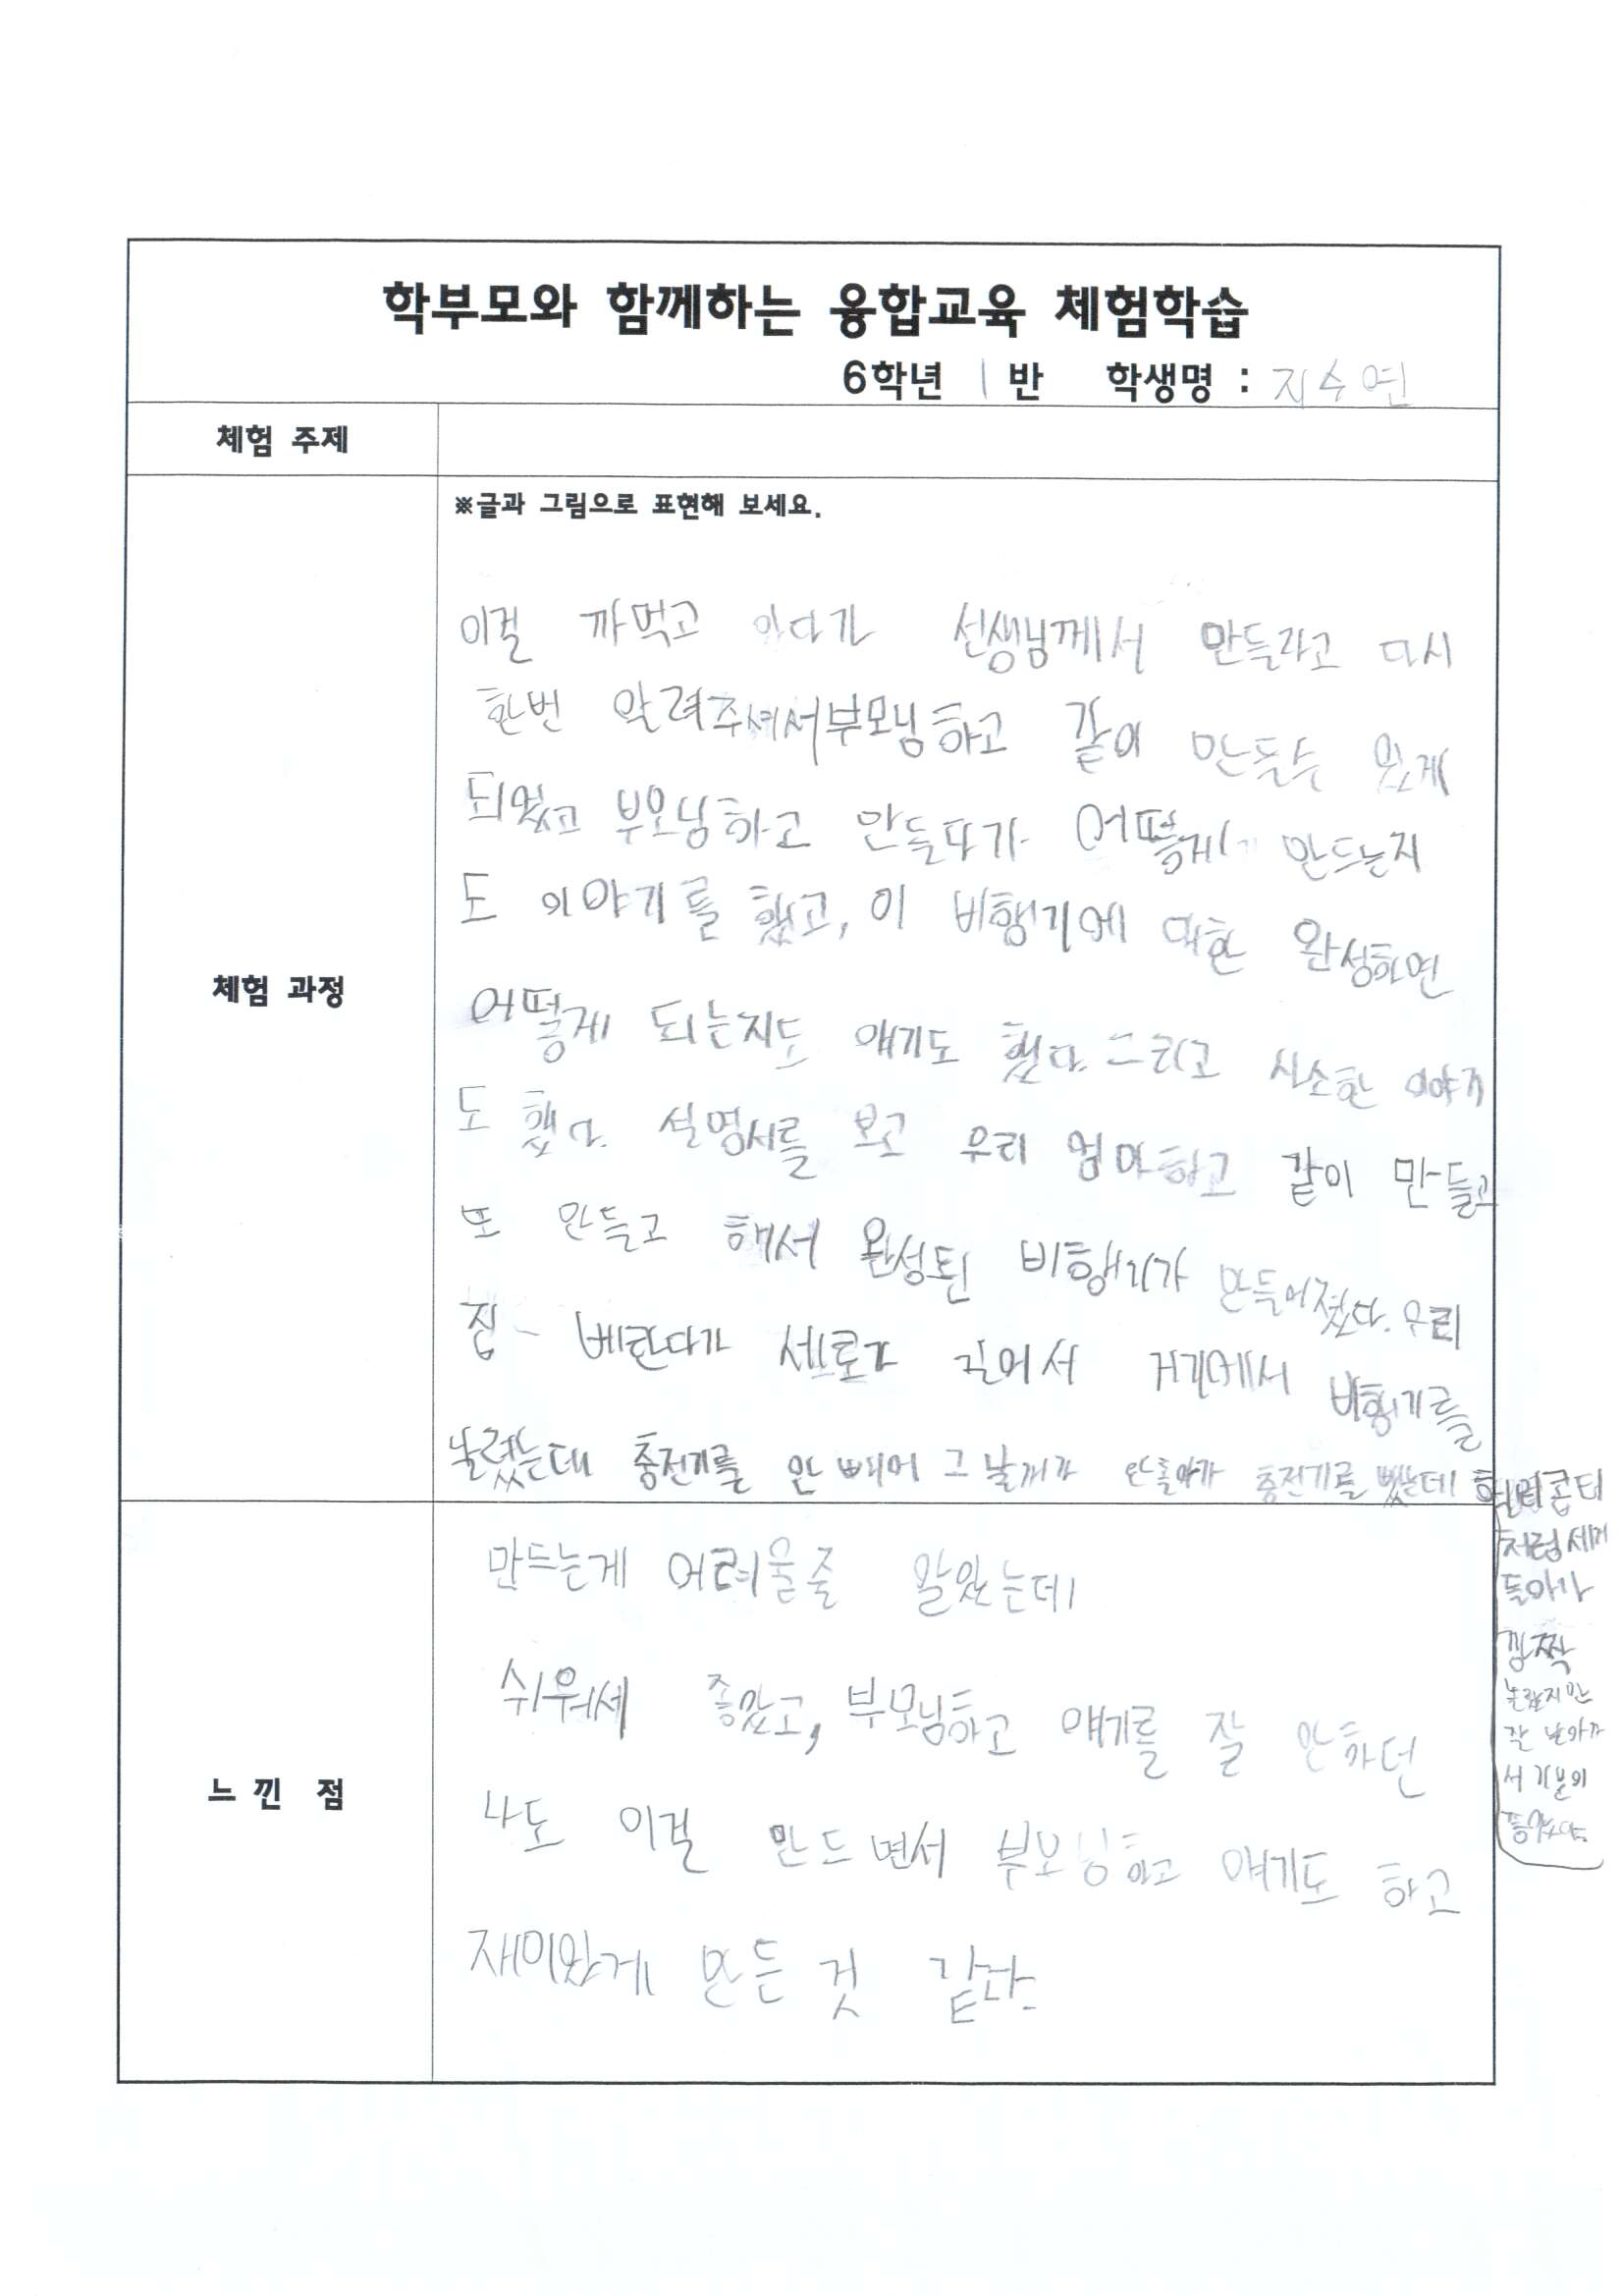 학부모와 함께하는 융합교육 체험학습
6학년 1 반 학생명 : 지수연
체험 주제
체험 과정
※글과 그림으로 표현해 보세요.
이걸 까먹고 있다가 선생님께서 만들라고 다시
한번 알려주셔서 부모님하고 같이 만들수 있게
되었고 부모님하고 만들다가 어떻게 만드는지
도 이야기를 했고, 이 비행기에 대한 완성하면
어떻게 되는지도 얘기도 했다. 그리고 사소한 이야기
도 했다. 설명서를 보고 우리 엄마하고 같이 만들고
또 만들고 해서 완성된 비행기가 만들어졌다. 우리
집 베란다가 세로가 길어서 거기에서 비행기를
날렸는데 충전기를 안 빼어 그 날개가 안돌아가 충전기를 뺐는데 헬리콥터
처럼 세게
돌아가
깜짝
놀랐지만
잘 날아가
서 기분이
좋았다.
느 낀 점
만드는게 어려울줄 알았는데
쉬워세 좋았고, 부모님하고 얘기를 잘 안하던
나도 이걸 만드면서 부모님하고 얘기도 하고
재미있게 만든 것 같다.